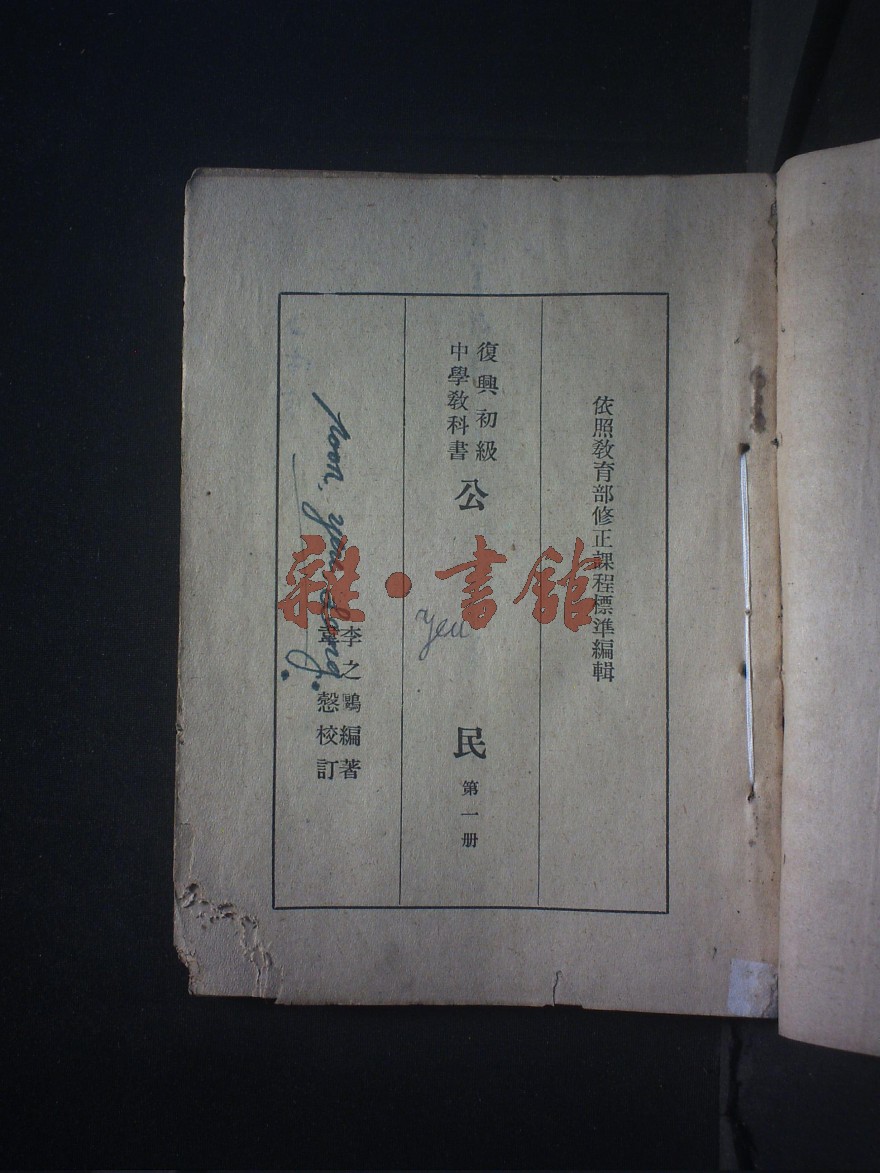 依照教育部修正課程標準編輯
復興初級
中學教科書
公民
第一册
李之鷗編著
韋慤校訂
yeu
雜·書館